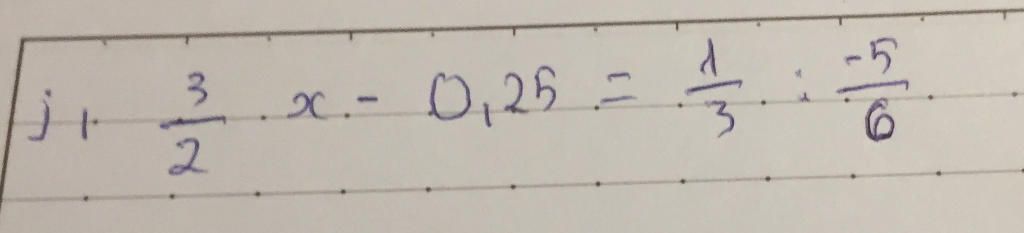 j, 3/2 . x - 0,25 = 1/3 : -5/6